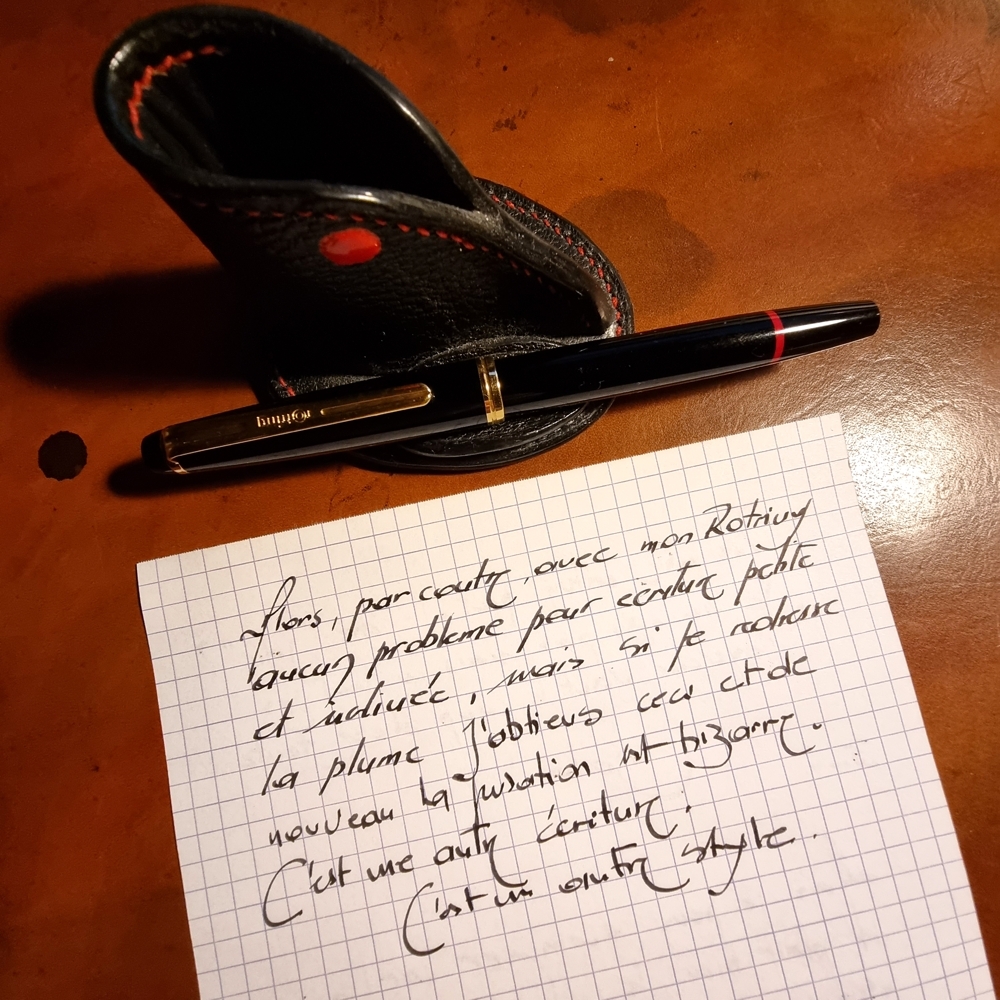 rotring
Alors, par contre, avec mon Rotring
aucun problème pour écriture petite
et inclinée, mais si je redresse
la plume j'obtiens ceci et de
nouveau la sensation est bizarre.
C'est une autre écriture.
C'est un autre style.